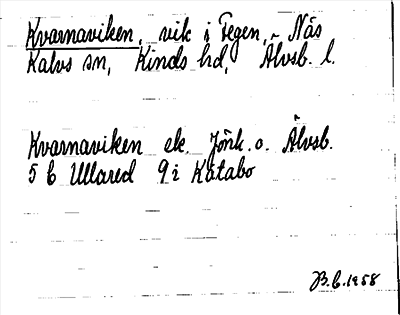 Kvarnaviken, vik i Fegen, - Näs
Kalvs sn, Kinds hd, Älvsb. l.
Kvarnaviken ek. Jönk. o. Älvsb.
5 C Ullared 9 i Katabo
B.C. 1958